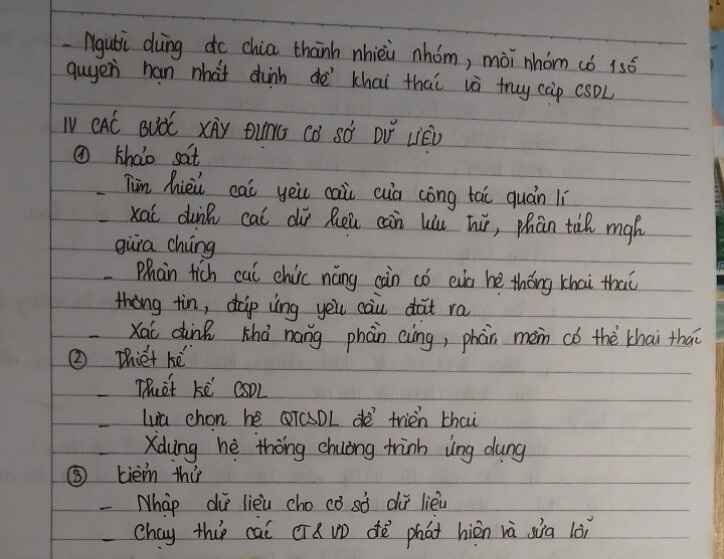 - Người dùng đc chia thành nhiều nhóm, mỗi nhóm có 1 số
quyền hạn nhất định để khai thác và truy cập CSDL
IV CÁC BƯỚC XÂY DỰNG CƠ SỞ DỮ LIỆU
① Khảo sát
- Tìm hiểu các yêu cầu của công tác quản lí
- Xác định các dữ liệu cần lưu trữ, phân tích mqh
giữa chúng
- Phân tích các chức năng cần có của hệ thống khai thác
thông tin, đáp ứng yêu cầu đặt ra
- Xác định khả năng phần cứng, phần mềm có thể khai thác
② Thiết kế
- Thiết kế CSDL
- Lựa chọn hệ QTCSDL để triển khai
- Xdựng hệ thống chương trình ứng dụng
③ Kiểm thử
- Nhập dữ liệu cho cơ sở dữ liệu
- Chạy thử các CT& VD để phát hiện và sửa lỗi